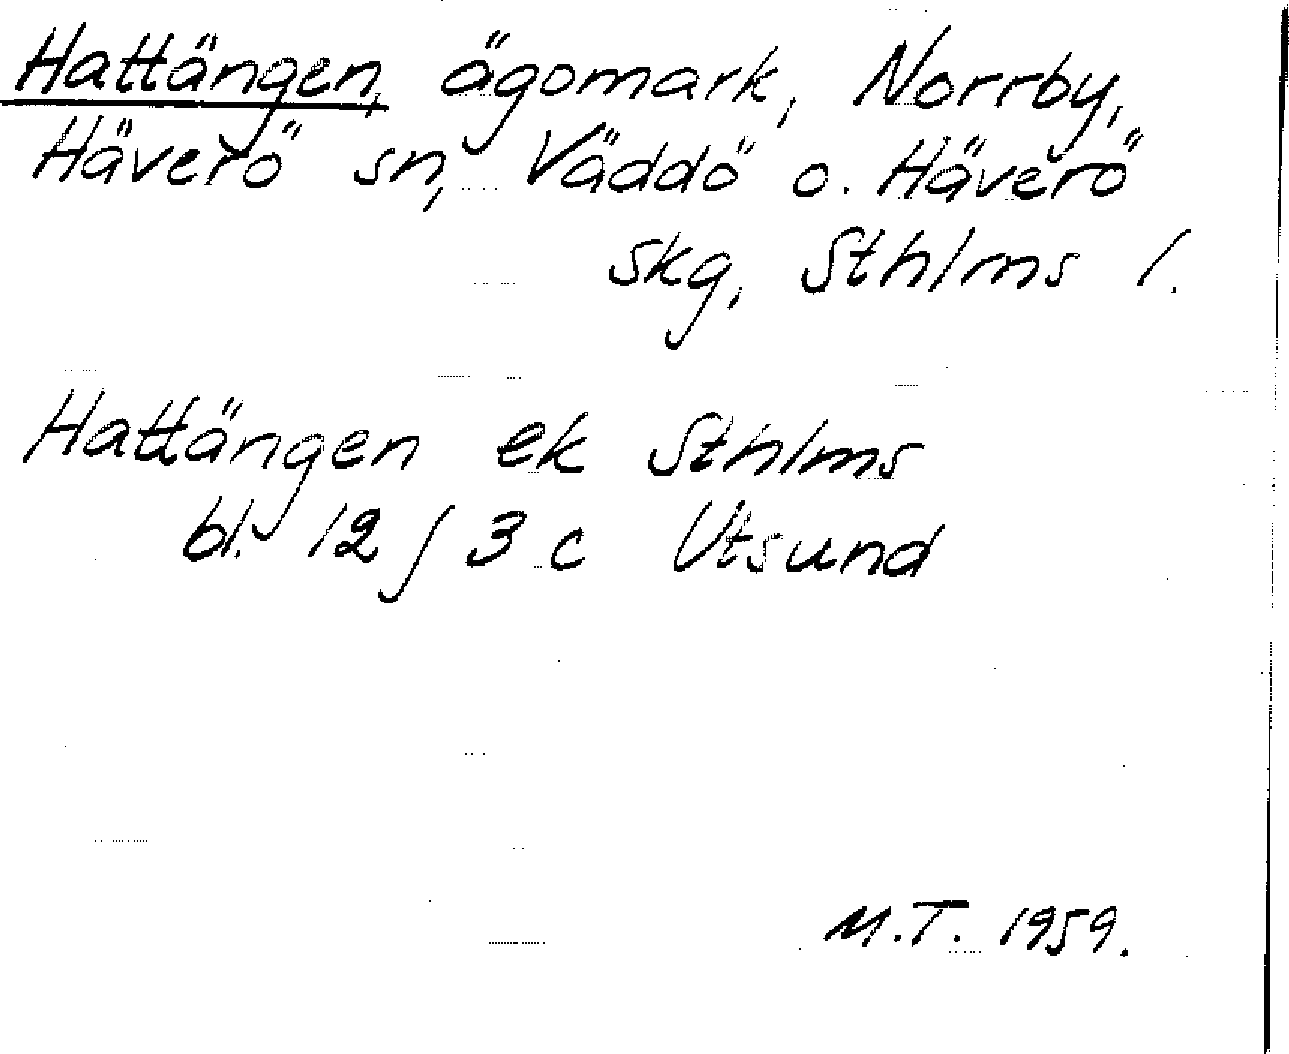 Hattängen, ägomark, Norrby,
Häverö sn, Väddö o. Häverö
skg, Sthlms l.
Hattängen ek Sthlms
bl. 12 J 3 c Utsund
M.T. 1959.